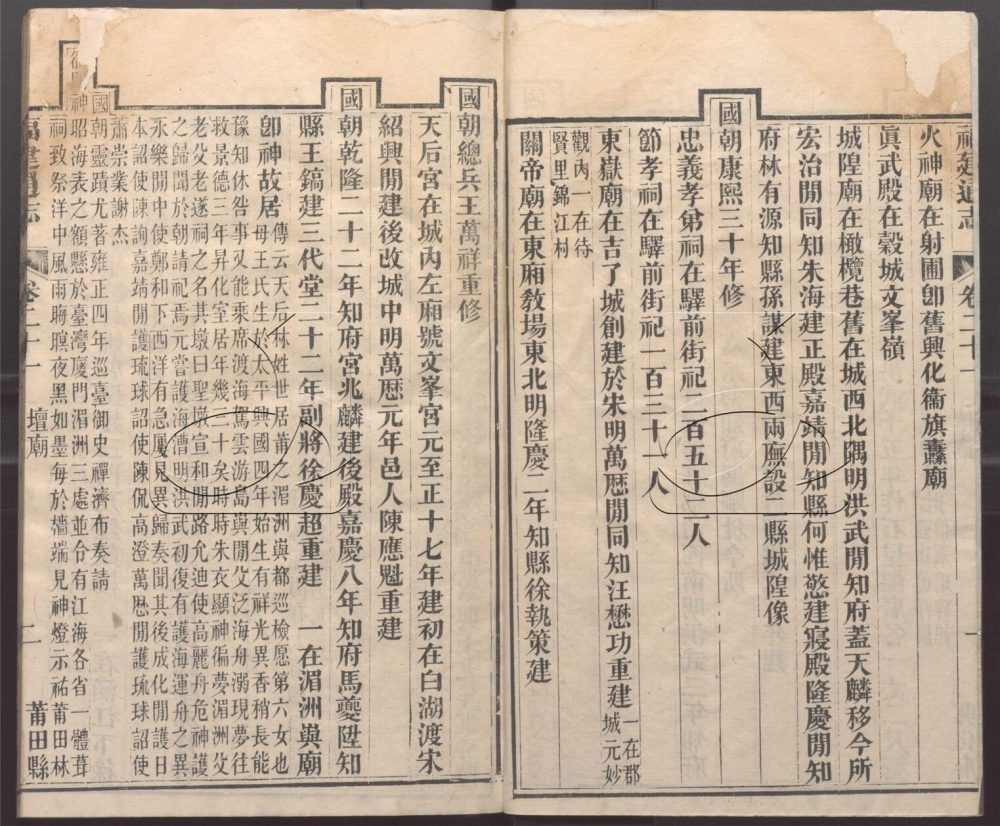 福建通志 卷二十一
火神廟在射圃卽舊興化衞旗纛廟
眞武殿在榖城文峯嶺
城隍廟在橄欖巷舊在城西北隅明洪武閒知府蓋天麟移今所
宏治閒同知朱海建正殿嘉靖閒知縣何惟憼建寢殿隆慶閒知
府林有源知縣孫謀建東西兩廡設二縣城隍像
國朝康熙三十年修
忠義孝弟祠在驛前街祀二百五十二人
節孝祠在驛前街祀一百三十一人
東嶽廟在吉了城創建於宋明萬厯閒同知汪懋功重建一在郡城元妙
觀內一在待賢里錦江村
關帝廟在東廂敎場東北明隆慶二年知縣徐執策建
國朝總兵王萬祥重修
天后宮在城內左廂號文峯宮元至正十七年建初在白湖渡宋
紹興閒建後改城中明萬厯元年邑人陳應魁重建
國朝乾隆二十二年知府宮兆麟建後殿嘉慶八年知府馬夔陞知
縣王鎬建三代堂二十二年副將徐慶超重建 一在湄洲與廟
卽神故居傳云天后林姓世居莆之湄洲與都巡檢愿第六女也
母王氏生於太平興國四年始生有祥光異香稍長能
豫知休咎事又能乘席渡海駕雲游島與閒父泛海舟溺現夢往
救景德三年昇化室居年幾三十矣時時朱衣顯神徧夢湄洲父
老父老遂祠之名其墩曰聖墩宣和閒路允迪使高麗舟危神護
之歸聞於朝請祀焉元嘗護海漕明洪武初復有護海運舟之異
永樂閒中使鄭和下西洋有急屢見異歸奏聞其後成化閒護日
本詔使陳詢嘉靖閒護琉球詔使陳侃高澄萬厯閒護琉球詔使
蕭崇業謝杰
國朝靈蹟尤著雍正四年巡臺御史禪濟布奏請
神昭海表之額懸於臺灣廈門湄洲三處並令有江海各省一體葺
祠致祭洋中風雨晦暝夜黑如墨每於檣端見神燈示祐莆田林
福建通志 卷二十一 壇廟 二 莆田縣